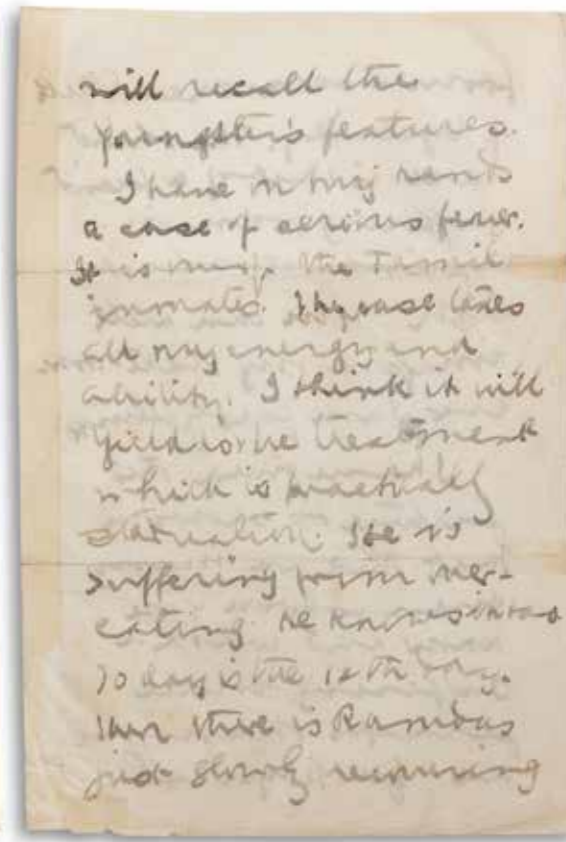 will recall the
youngster's features.
I have in my hands
a case of serious fever.
It is one of the Tamil
inmates. The case takes
all my energy and
ability. I think it will
yield to the treatment
which is practically
starvation. He is
suffering from over-
eating. He knows
Today is the 12th day.
Then there is Ramdas
just slowly recovering